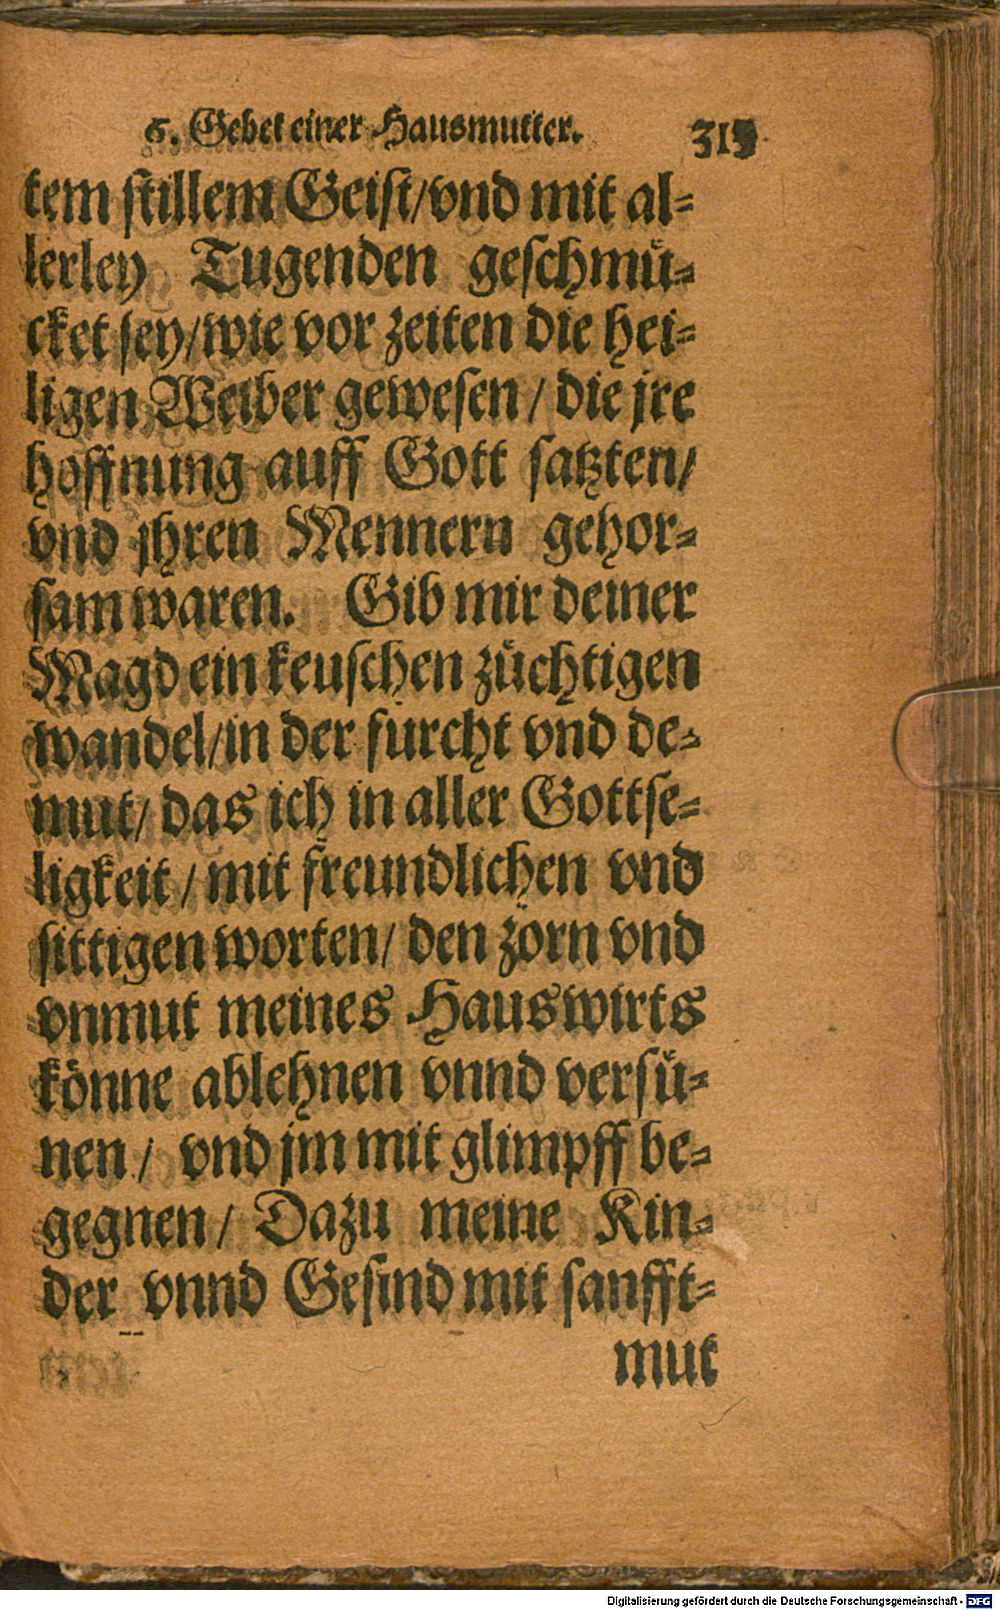 6. Gebet einer Hausmutter. 315
tem stillem Geist/vnd mit al-
lerley Tugenden geschmü-
cket sey/wie vor zeiten die hei-
ligen Weiber gewesen / die jre
hoffnung auff Gott satzten/
vnd jhren Mennern gehor-
sam waren. Gib mir deiner
Magd ein keuschen züchtigen
wandel/in der furcht vnd de-
mut/ das ich in aller Gottse-
ligkeit / mit freundlichen vnd
sittigen worten/ den zorn vnd
vnmut meines Hauswirts
könne ablehnen vnnd versü-
nen / vnd jm mit glimpff be-
gegnen / Dazu meine Kin-
der vnnd Gesind mit sanfft-
mut
Digitalisierung gefördert durch die Deutsche Forschungsgemeinschaft - DFG